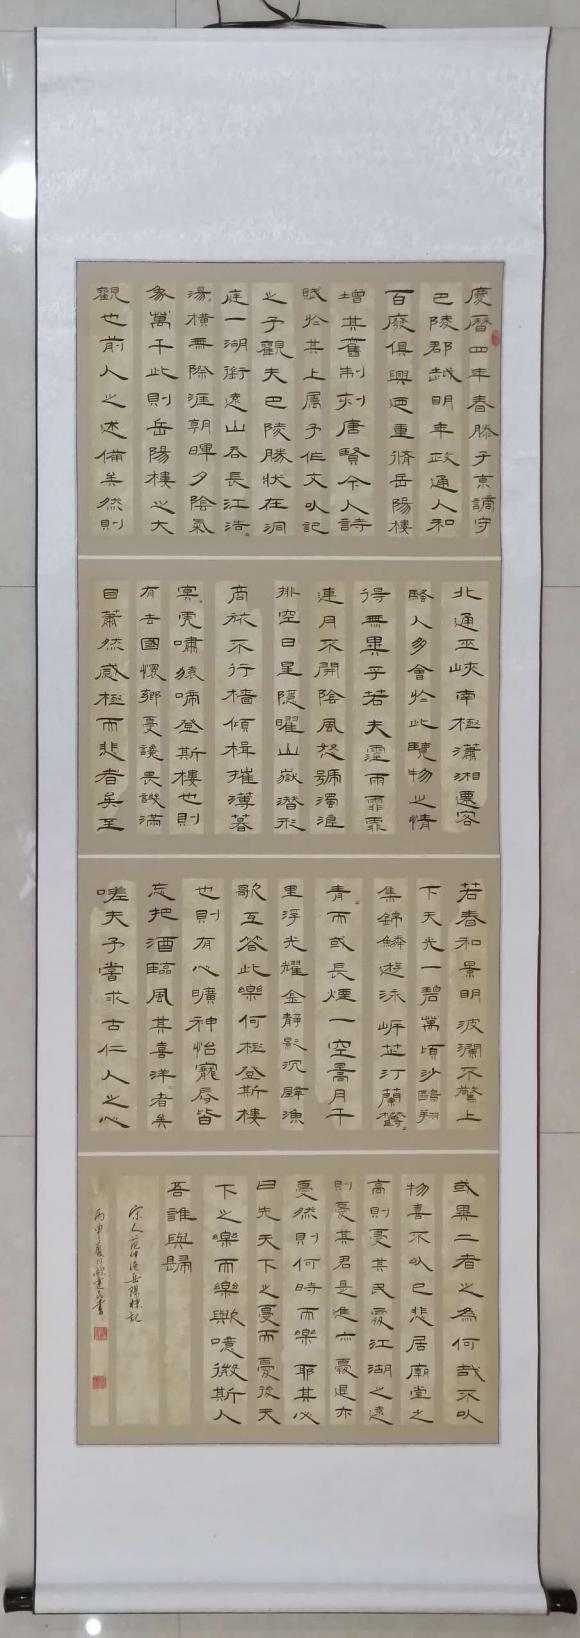 慶曆四年春滕子京謫守
巴陵郡越明年政通人和
百廢俱興廼重脩岳陽樓
增其舊制刻唐賢今人詩
賦於其上屬予作文以記
之予觀夫巴陵勝狀在洞
庭一湖銜遠山吞長江浩〻
湯〻橫無際涯朝暉夕陰氣
象萬千此則岳陽樓之大
觀也前人之述備矣然則
北通巫峽南極瀟湘遷客
騷人多會於此覽物之情
得無異乎若夫霪雨霏霏
連月不開陰風怒號濁浪
排空日星隱曜山嶽潛形
商旅不行檣傾楫摧薄暮
冥〻虎嘯猿啼登斯樓也則
有去國懷鄉憂讒畏譏滿
目蕭然感極而悲者矣至
若春和景明波瀾不驚上
下天光一碧萬頃沙鷗翔
集錦鱗遊泳岸芷汀蘭鬱〻
青〻而或長煙一空皓月千
里浮光耀金靜影沉璧漁
歌互答此樂何極登斯樓
也則有心曠神怡寵辱皆
忘把酒臨風其喜洋〻者矣
嗟夫予嘗求古仁人之心
或異二者之為何哉不以
物喜不以己悲居廟堂之
高則憂其民處江湖之遠
則憂其君是進亦憂退亦
憂然則何時而樂耶其必
曰先天下之憂而憂後天
下之樂而樂歟噫微斯人
吾誰與歸
宋人范仲淹岳陽樓記
丙申夏月書